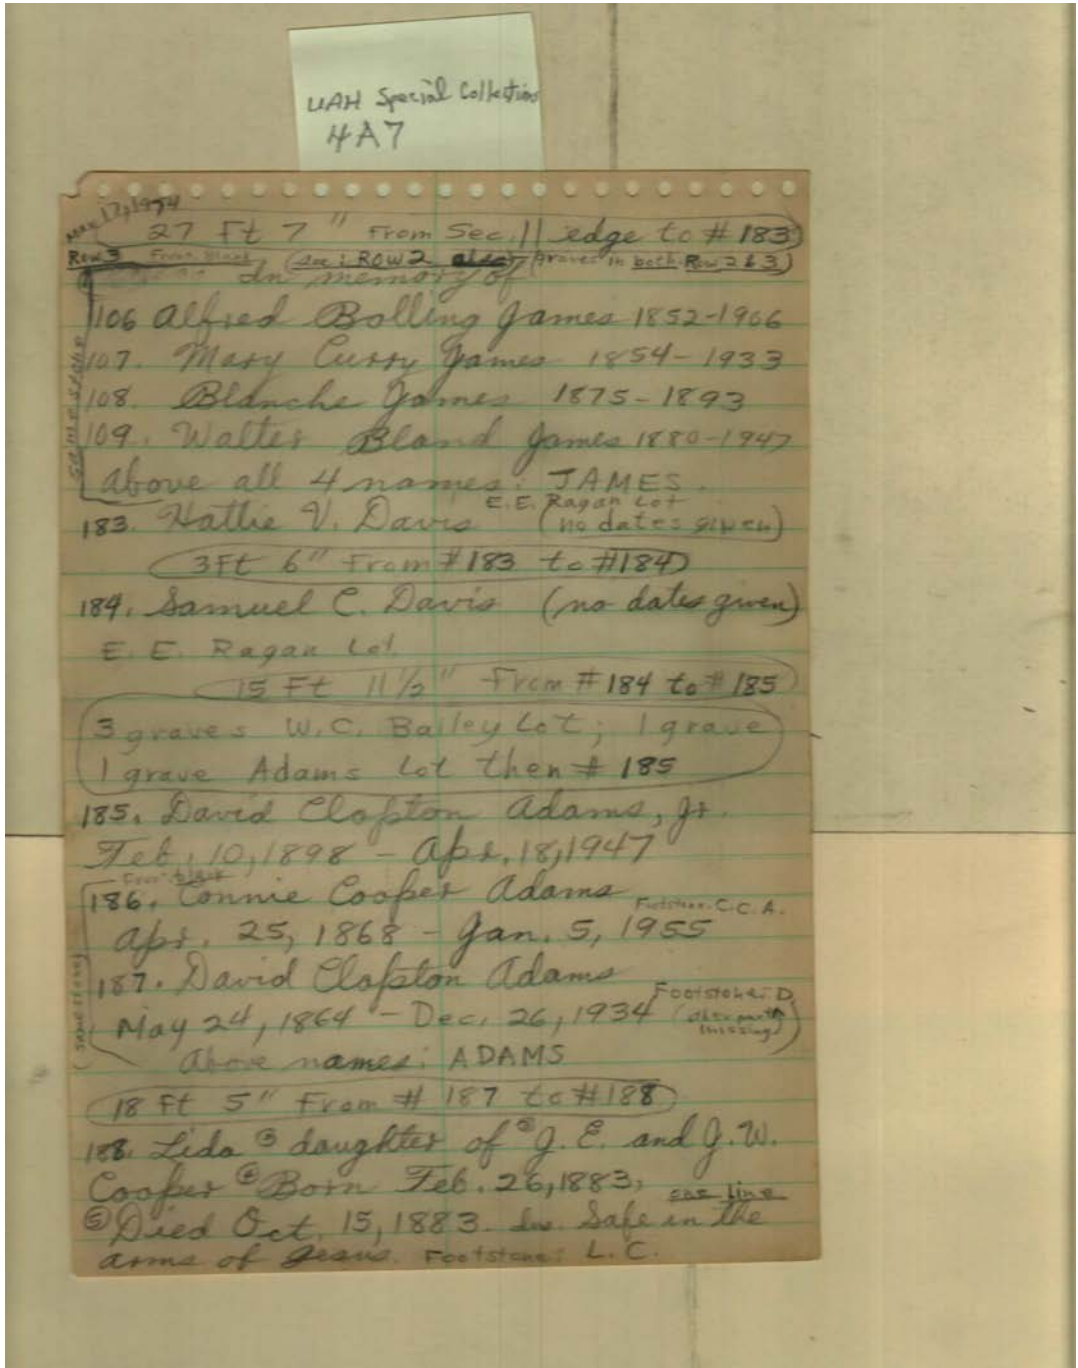 UAH Special Collection
4A7
Mar 17, 1974
27 Ft 7" From Sec. 11 edge to # 183
Row 3 (see: ROW 2 also) (graves in both Row 2 & 3)
In memory of
106 Alfred Bolling James 1852-1906
107. Mary Curry James 1854-1933
108. Blanche James 1875-1893
109. Walter Bland James 1880-1947
same stone
Above all 4 names: JAMES.
E.E. Ragan Lot
183. Hattie V. Davis (no dates given)
3Ft 6" From #183 to #184
184. Samuel C. Davis (no dates given)
E. E. Ragan Lot
15 Ft 11 1/2" From #184 to #185
3 graves W.C. Bailey Lot; 1 grave
1 grave Adams Lot then # 185
185. David Clopton Adams, Jr.
Feb. 10, 1898 - Apr. 18, 1947
186. Connie Cooper Adams Footstone: C.C.A.
Apr. 25, 1868 - Jan. 5, 1955
187. David Clopton Adams
May 24, 1864 - Dec. 26, 1934 Footstone: D
(other part missing)
(same stone)
Above names: ADAMS
18 Ft 5" From # 187 to #188
188. Lida ③ daughter of ② J. E. and J. W.
Cooper ④ Born Feb. 26, 1883, one line
⑤ Died Oct. 15, 1883. Ins. Safe in the
arms of Jesus. Footstone: L. C.